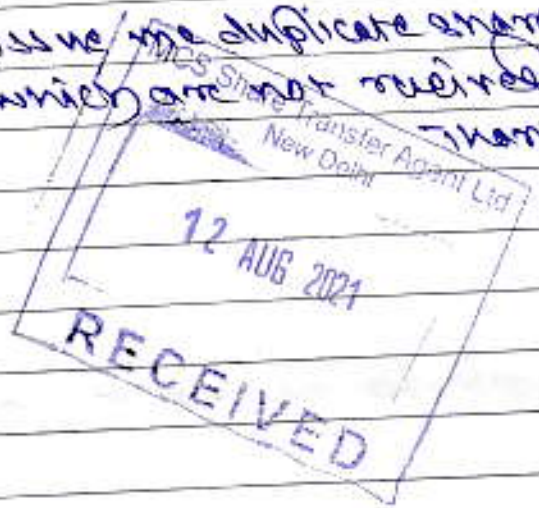 issue me duplicate share
which are not received
Than
MCS Share Transfer Agent Ltd
New Delhi
12 AUG 2021
RECEIVED